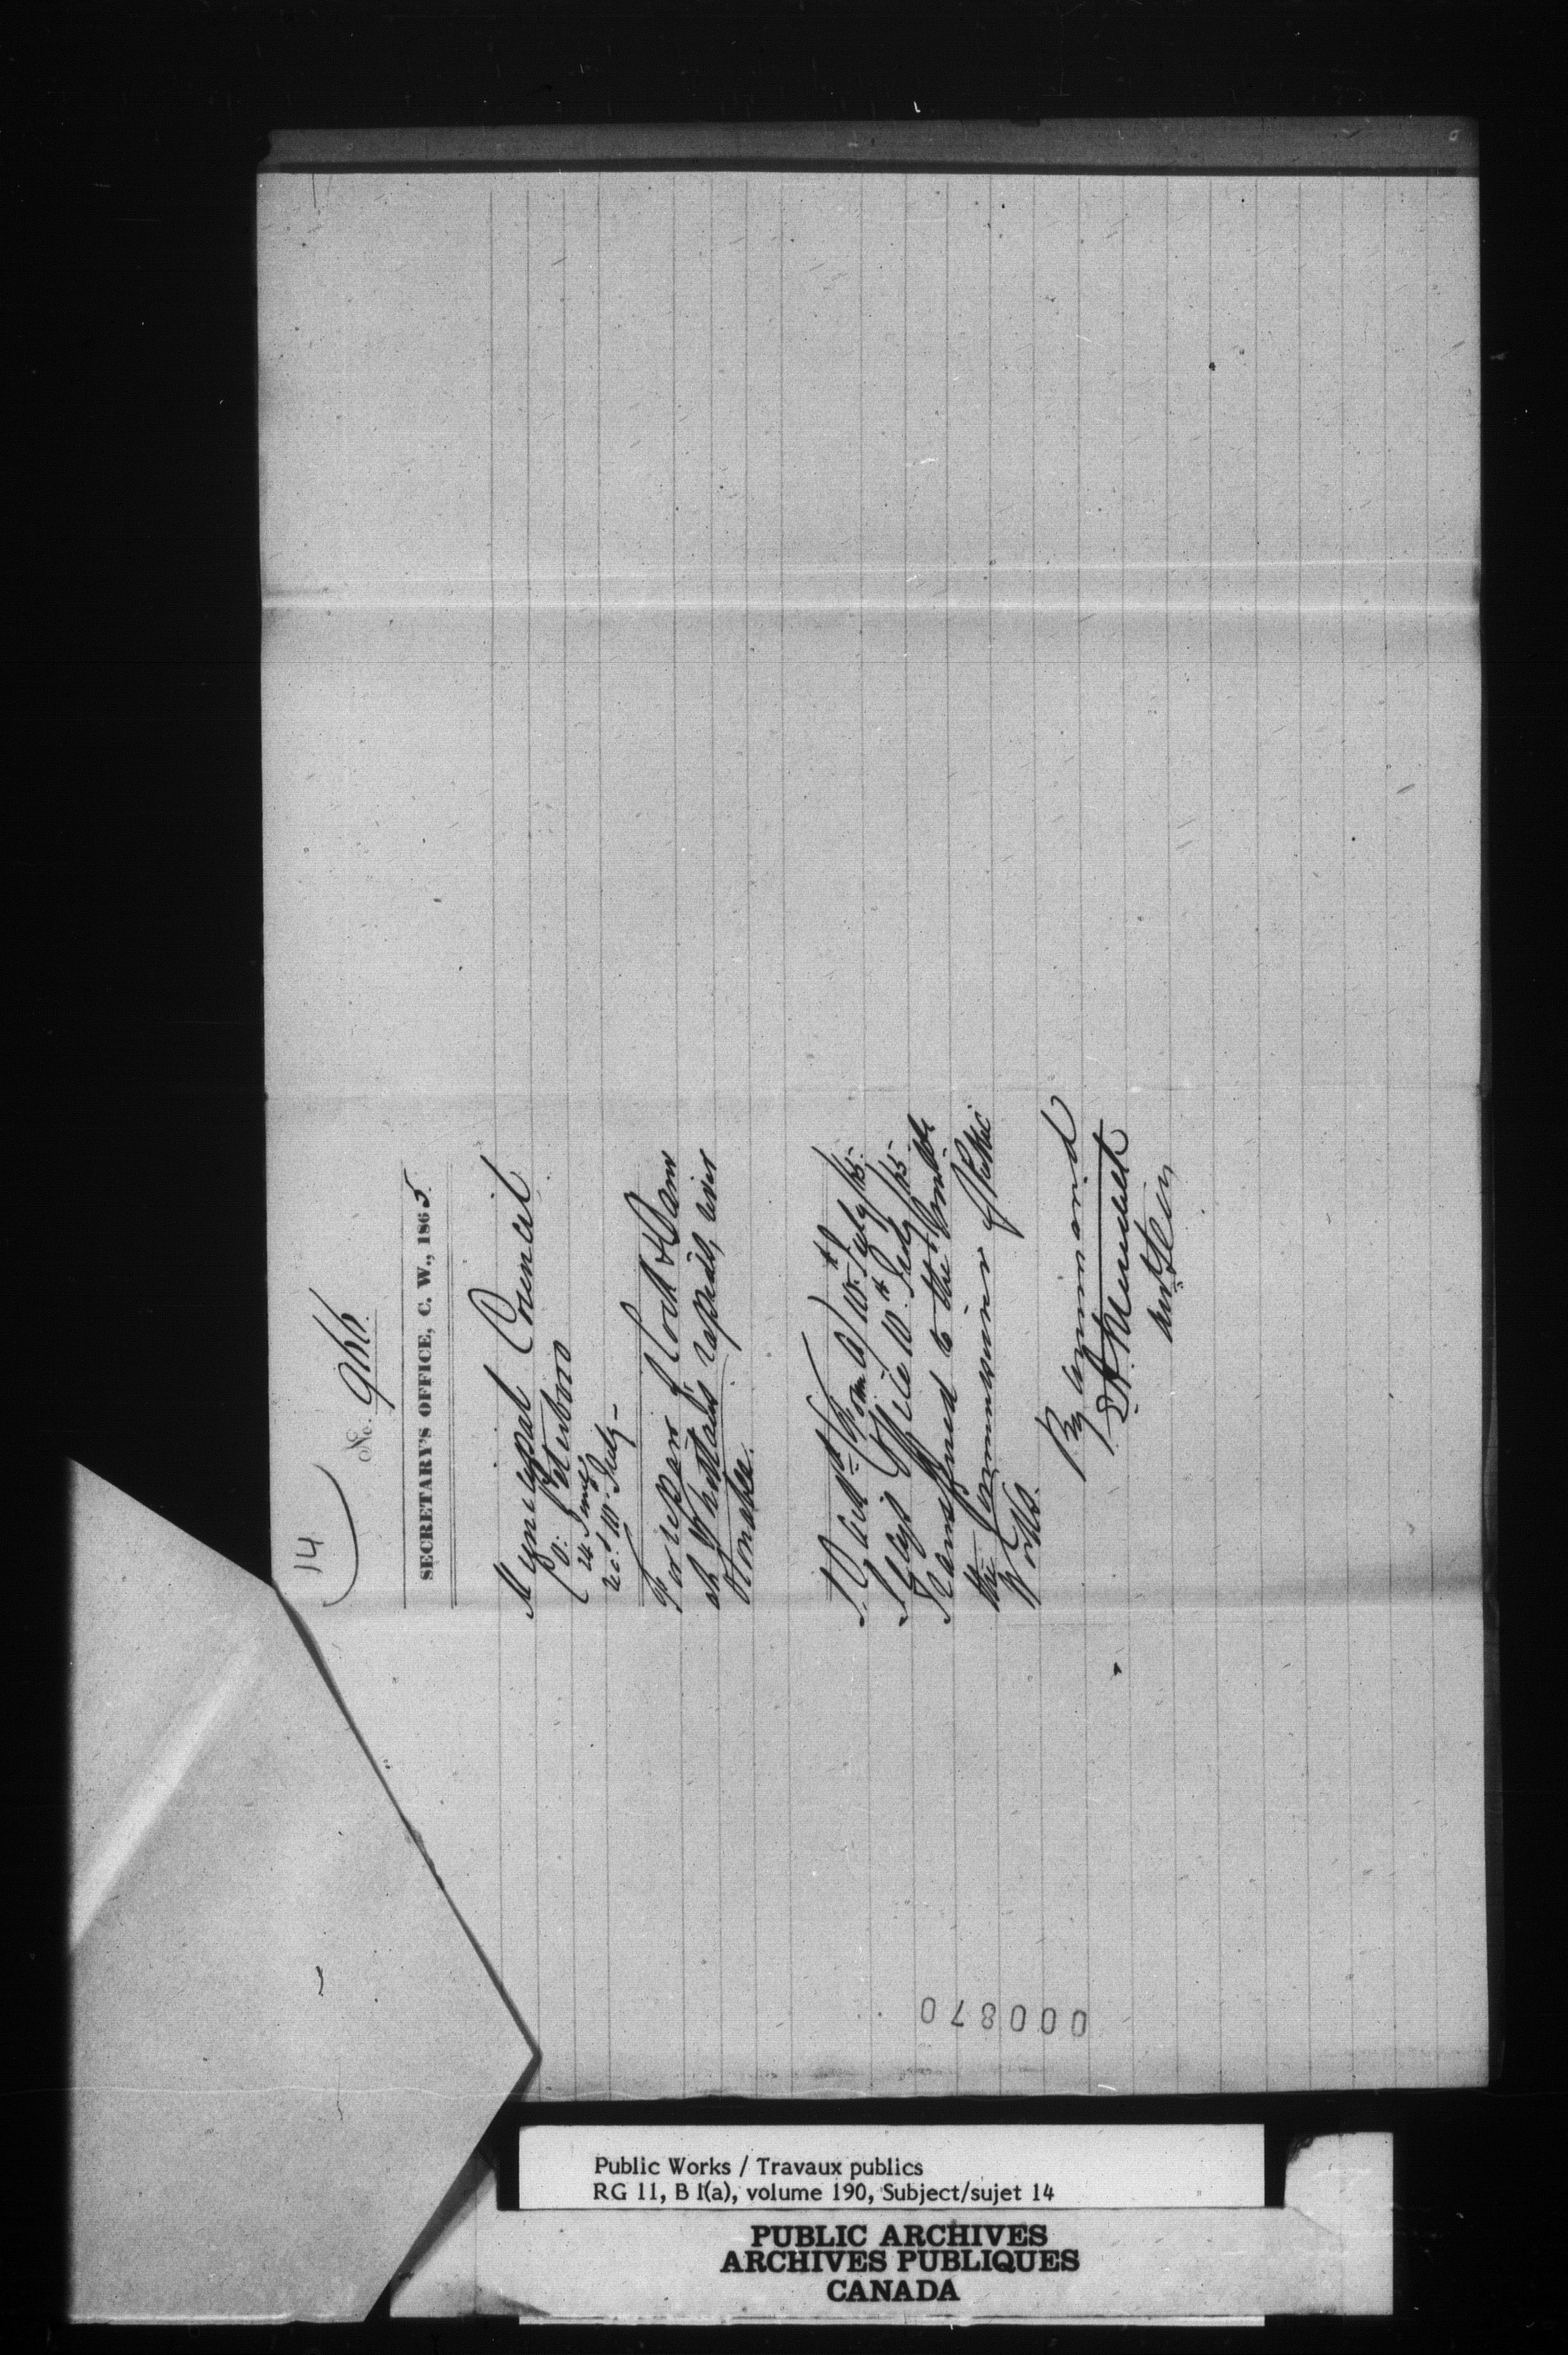 14
No. 966.
SECRETARY'S OFFICE, C. W., 1865.
Municipal Council
Co: Peterboro
24 June,
rec.d 10. July -
For repair of Lock & Dam
at Whitlas rapids, river
Otonabee.
10.th July /65.
Office 10.th July /65
Transferred to the Honble
the Commissioner of Public
Works.
By Command
E A Meredith
000870
Public Works / Travaux publics
RG 11, B 1(a), volume 190, Subject/sujet 14
PUBLIC ARCHIVES
ARCHIVES PUBLIQUES
CANADA